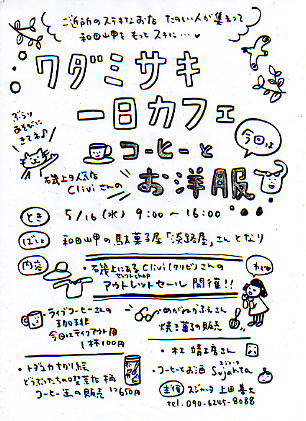 ご近所のステキなお店 たのしい人が集まって
和田岬をもっとスキに…
ワダミサキ
一日カフェ
ぶらり
あそびに
きてね♪
今回は
コーヒーと
お洋服
石畳上る人気店
Cliviさんの
とき 5/16(水) 9:00～16:00
ばしょ 和田岬の駄菓子屋「淡路屋」さんとなり
内容
・石畳上にあるClivi(クリビ)さんの
アウトレットセール開催!!
・ライブコーヒーさんの
珈琲
今回はテイクアウト用
1杯100円
・めがねかふぇさん
焼き菓子の販売
・トダユカ 切り絵
どうぶつたちの喫茶店 柄
コーヒー豆の販売
650円
・木工 靖工房さん
・コーヒーとお酒 Sujahta
主催 スジャータ 上田
tel. 090-6245-8088